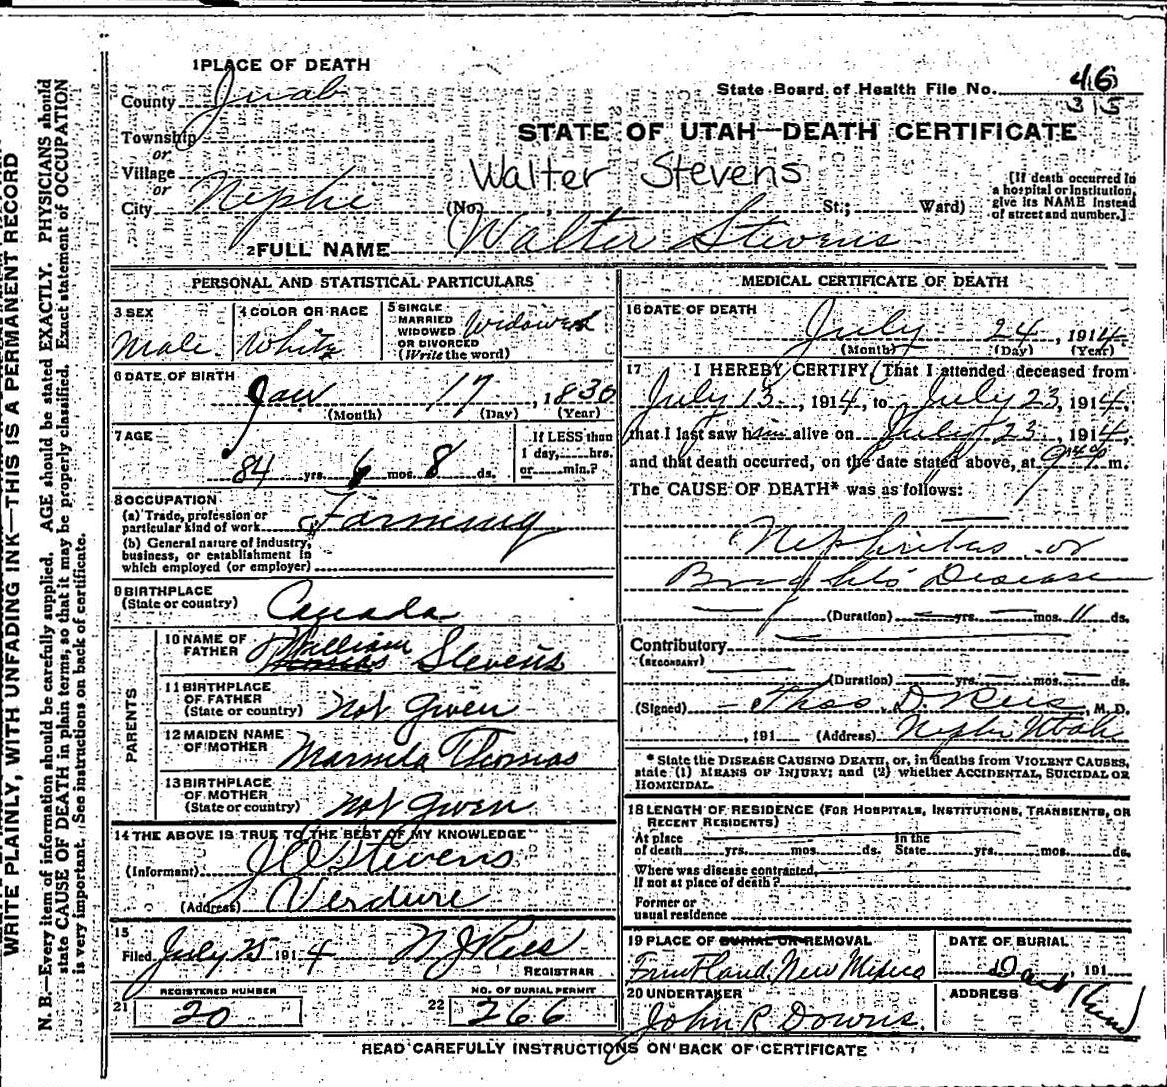 WRITE PLAINLY, WITH UNFADING INK—THIS IS A PERMANENT RECORD
N. B.—Every item of information should be carefully supplied. AGE should be stated EXACTLY. PHYSICIANS should
state CAUSE OF DEATH in plain terms, so that it may be properly classified. Exact statement of OCCUPATION
is very important. See instructions on back of certificate.
1 PLACE OF DEATH
County Juab
State Board of Health File No. 46
315
Township
or
STATE OF UTAH—DEATH CERTIFICATE
Village
or
Walter Stevens
City Nephi (No. , St.; Ward)
[If death occurred in
a hospital or institution,
give its NAME instead
of street and number.]
2 FULL NAME Walter Stevens
PERSONAL AND STATISTICAL PARTICULARS
3 SEX
Male
4 COLOR OR RACE
White
5 SINGLE
MARRIED
WIDOWED
OR DIVORCED
(Write the word)
Widowed
6 DATE OF BIRTH
Jan 17, 1830
(Month) (Day) (Year)
7 AGE
84 yrs. 6 mos. 8 ds.
If LESS than
1 day, hrs.
or min.?
8 OCCUPATION
(a) Trade, profession or
particular kind of work Farming
(b) General nature of industry,
business, or establishment in
which employed (or employer)
9 BIRTHPLACE
(State or country) Canada
PARENTS
10 NAME OF
FATHER William Stevens
11 BIRTHPLACE
OF FATHER
(State or country) Not Given
12 MAIDEN NAME
OF MOTHER Marinda Thomas
13 BIRTHPLACE
OF MOTHER
(State or country) not given
14 THE ABOVE IS TRUE TO THE BEST OF MY KNOWLEDGE
(Informant) J O Stevens
(Address) Verdure
15
Filed July 25 1914 N J Rees
REGISTRAR
REGISTERED NUMBER
21 20
NO. OF BURIAL PERMIT
22 266
MEDICAL CERTIFICATE OF DEATH
16 DATE OF DEATH
July 24, 1914
(Month) (Day) (Year)
17 I HEREBY CERTIFY, That I attended deceased from
July 13, 1914, to July 23, 1914,
that I last saw him alive on July 23, 1914,
and that death occurred, on the date stated above, at m.
The CAUSE OF DEATH* was as follows:
Nephritus or
Brights Disease
(Duration) yrs. mos. 11 ds.
Contributory
(SECONDARY)
(Duration) yrs. mos. ds.
(Signed) Thos D Rees, M. D.
, 191 (Address) Nephi Utah
* State the DISEASE CAUSING DEATH, or, in deaths from VIOLENT CAUSES,
state (1) MEANS OF INJURY; and (2) whether ACCIDENTAL, SUICIDAL OR
HOMICIDAL.
18 LENGTH OF RESIDENCE (FOR HOSPITALS, INSTITUTIONS, TRANSIENTS, OR
RECENT RESIDENTS)
At place In the
of death yrs. mos. ds. State yrs. mos. ds.
Where was disease contracted,
If not at place of death?
Former or
usual residence
19 PLACE OF BURIAL OR REMOVAL
Fruitland, New Mexico
DATE OF BURIAL
191
20 UNDERTAKER
John R Downs.
ADDRESS
READ CAREFULLY INSTRUCTIONS ON BACK OF CERTIFICATE